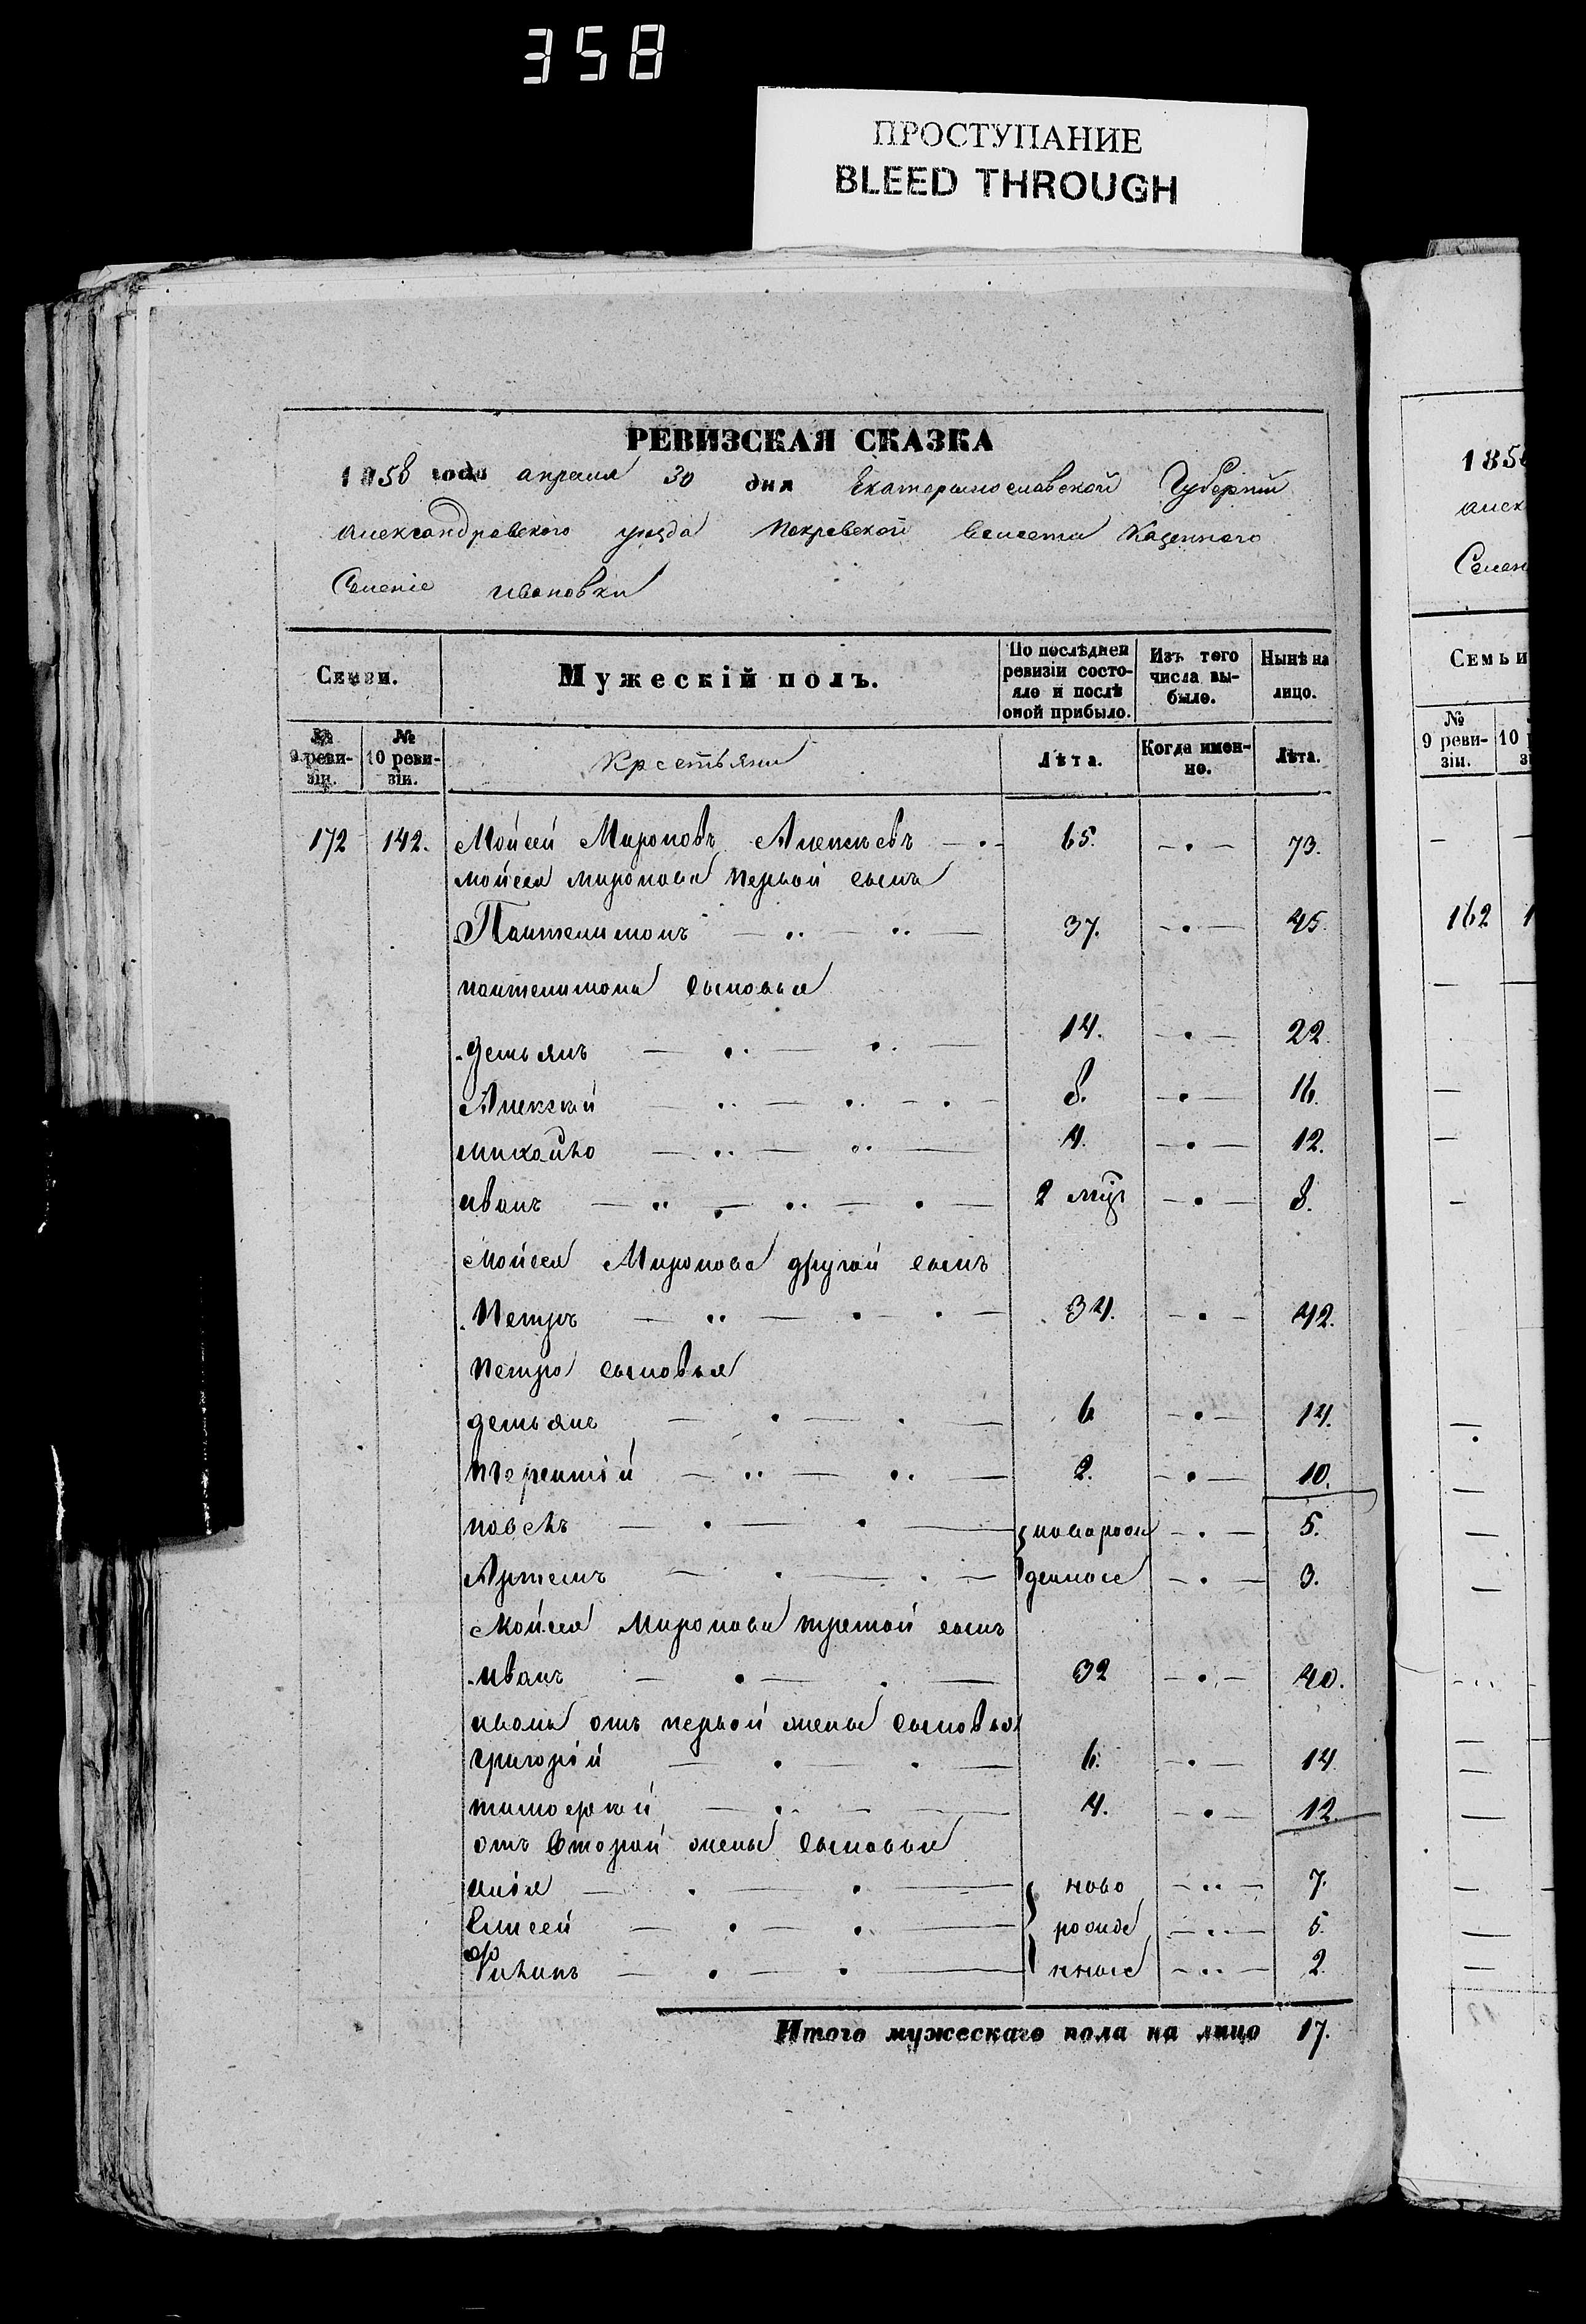 358
ПРОСТУПАНИЕ
BLEED THROUGH
РЕВИЗСКАЯ СКАЗКА
1858 года апреля 30 дня Екатеринославской Губерніи
Александровского уезда Покровской волости Казенного
Селеніе ивановки
Семьи. Мужескій полъ. По послѣдней ревизіи состояло и послѣ оной прибыло. Изъ того числа выбыло. Нынѣ на лицо.
№ 9 ревизіи. № 10 ревизіи. Крестьяни Лѣта. Когда именно. Лѣта.
172 142. Мойсей Мироновъ 65. 73.
мойсея миронова первой сынъ
Пантелимонъ 37. 45.
пантелимона сыновья
демьянъ 14. 22.
Алексѣй 8. 16.
михайло 4. 12.
иванъ 2 8.
Мойсея Миронова другой сынъ
Петръ 34. 42.
Петра сыновья
демьянъ 6 14.
терентій 2. 10.
павелъ новорож 5.
Артемъ денные 3.
Мойсея Миронова третой сынъ
иванъ 32 40.
ивана отъ первой жены сыновья
григорій 6. 14.
тимофей 4. 12.
отъ второй жены сыновья
илія ново 7.
Елисей рожде 5.
Филипъ нные 2.
Итого мужескаго пола на лицо 17.
185
Семьи
№ 9 ревизіи. 10
162 1